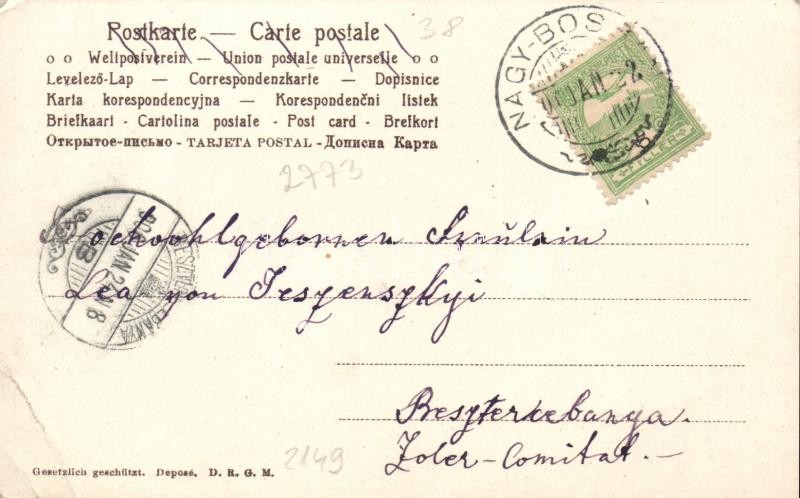 Postkarte — Carte postale
38
o o Weltpostverein — Union postale universelle o o
Levelező-Lap — Correspondenzkarte — Dopisnice
Karta korespondencyjna — Korespondenční lístek
Briefkaart - Cartolina postale - Post card - Brefkort
Открытое-письмо - TARJETA POSTAL - Дописна Карта
NAGY-BOS
JAN 22
FILLÉR
2773
JAN 24
8
B
Hochwohlgebornen Fräulein
Lea von Jeszenszkyi
Beszterczebanya.
Zoler-Comitat.—
Gesetzlich geschützt. Deposé. D. R. G. M.
2149